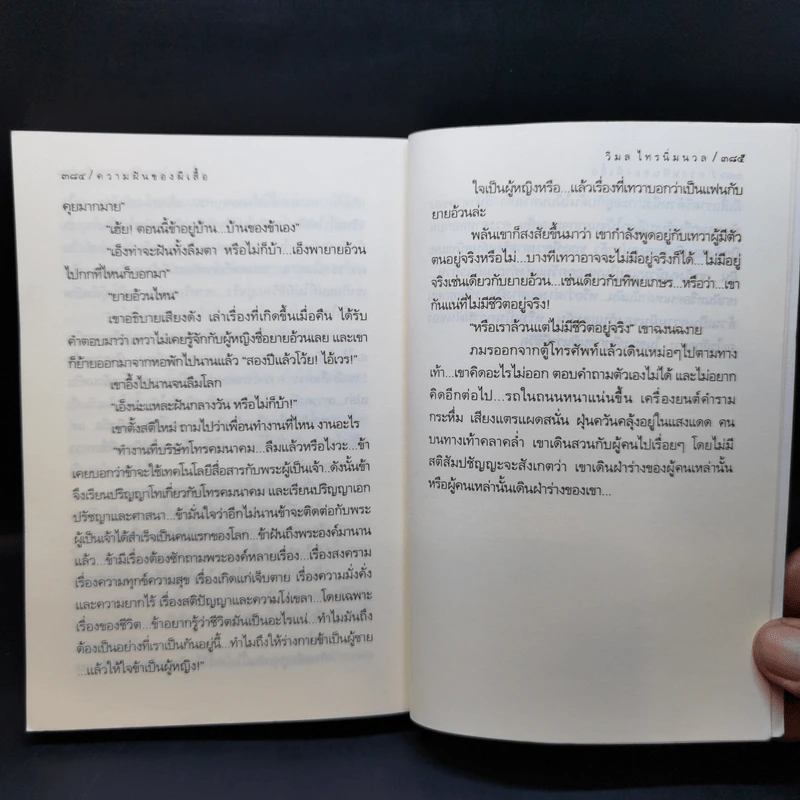 ๓๘๔ / ความฝันของผีเสื้อ
คุยมากมาย"
"เฮ้ย! ตอนนี้ข้าอยู่บ้าน...บ้านของข้าเอง"
"เอ็งท่าจะฝันทั้งลืมตา หรือไม่ก็บ้า...เอ็งพายายอ้วน
ไปกกที่ไหนก็บอกมา"
"ยายอ้วนไหน"
เขาอธิบายเสียงดัง เล่าเรื่องที่เกิดขึ้นเมื่อคืน ได้รับ
คำตอบมาว่า เทวาไม่เคยรู้จักกับผู้หญิงชื่อยายอ้วนเลย และเขา
ก็ย้ายออกมาจากหอพักไปนานแล้ว "สองปีแล้วโว้ย! ไอ้เวร!"
เขาอึ้งไปนานจนลืมโลก
"เอ็งน่ะแหละฝันกลางวัน หรือไม่ก็บ้า!"
เขาตั้งสติใหม่ ถามไปว่าเพื่อนทำงานที่ไหน งานอะไร
"ทำงานที่บริษัทโทรคมนาคม...ลืมแล้วหรือไงวะ...ข้า
เคยบอกว่าข้าจะใช้เทคโนโลยีสื่อสารกับพระผู้เป็นเจ้า..ดังนั้นข้า
จึงเรียนปริญญาโทเกี่ยวกับโทรคมนาคม และเรียนปริญญาเอก
ปรัชญาและศาสนา...ข้ามั่นใจว่าอีกไม่นานข้าจะติดต่อกับพระ
ผู้เป็นเจ้าได้สำเร็จเป็นคนแรกของโลก...ข้าฝันถึงพระองค์มานาน
แล้ว...ข้ามีเรื่องต้องซักถามพระองค์หลายเรื่อง...เรื่องสงคราม
เรื่องความทุกข์ความสุข เรื่องเกิดแก่เจ็บตาย เรื่องความมั่งคั่ง
และความยากไร้ เรื่องสติปัญญาและความโง่เขลา...โดยเฉพาะ
เรื่องของชีวิต...ข้าอยากรู้ว่าชีวิตมันเป็นอะไรแน่...ทำไมมันถึง
ต้องเป็นอย่างที่เราเป็นกันอยู่นี้...ทำไมถึงให้ร่างกายข้าเป็นผู้ชาย
...แล้วให้ใจข้าเป็นผู้หญิง!"
วิมล ไทรนิ่มนวล / ๓๘๕
ใจเป็นผู้หญิงหรือ...แล้วเรื่องที่เทวาบอกว่าเป็นแฟนกับ
ยายอ้วนล่ะ
พลันเขาก็สงสัยขึ้นมาว่า เขากำลังพูดอยู่กับเทวาผู้มีตัว
ตนอยู่จริงหรือไม่...บางทีเทวาอาจจะไม่มีอยู่จริงก็ได้...ไม่มีอยู่
จริงเช่นเดียวกับยายอ้วน...เช่นเดียวกับทิพยเกษร...หรือว่า...เขา
กันแน่ที่ไม่มีชีวิตอยู่จริง!
"หรือเราล้วนแต่ไม่มีชีวิตอยู่จริง" เขาฉงนฉงาย
ภมรออกจากตู้โทรศัพท์แล้วเดินเหม่อๆไปตามทาง
เท้า...เขาคิดอะไรไม่ออก ตอบคำถามตัวเองไม่ได้ และไม่อยาก
คิดอีกต่อไป...รถในถนนหนาแน่นขึ้น เครื่องยนต์คำราม
กระหึ่ม เสียงแตรแผดสนั่น ฝุ่นควันคลุ้งอยู่ในแสงแดด คน
บนทางเท้าคลาคล่ำ เขาเดินสวนกับผู้คนไปเรื่อยๆ โดยไม่มี
สติสัมปชัญญะจะสังเกตว่า เขาเดินฝ่าร่างของผู้คนเหล่านั้น
หรือผู้คนเหล่านั้นเดินฝ่าร่างของเขา...